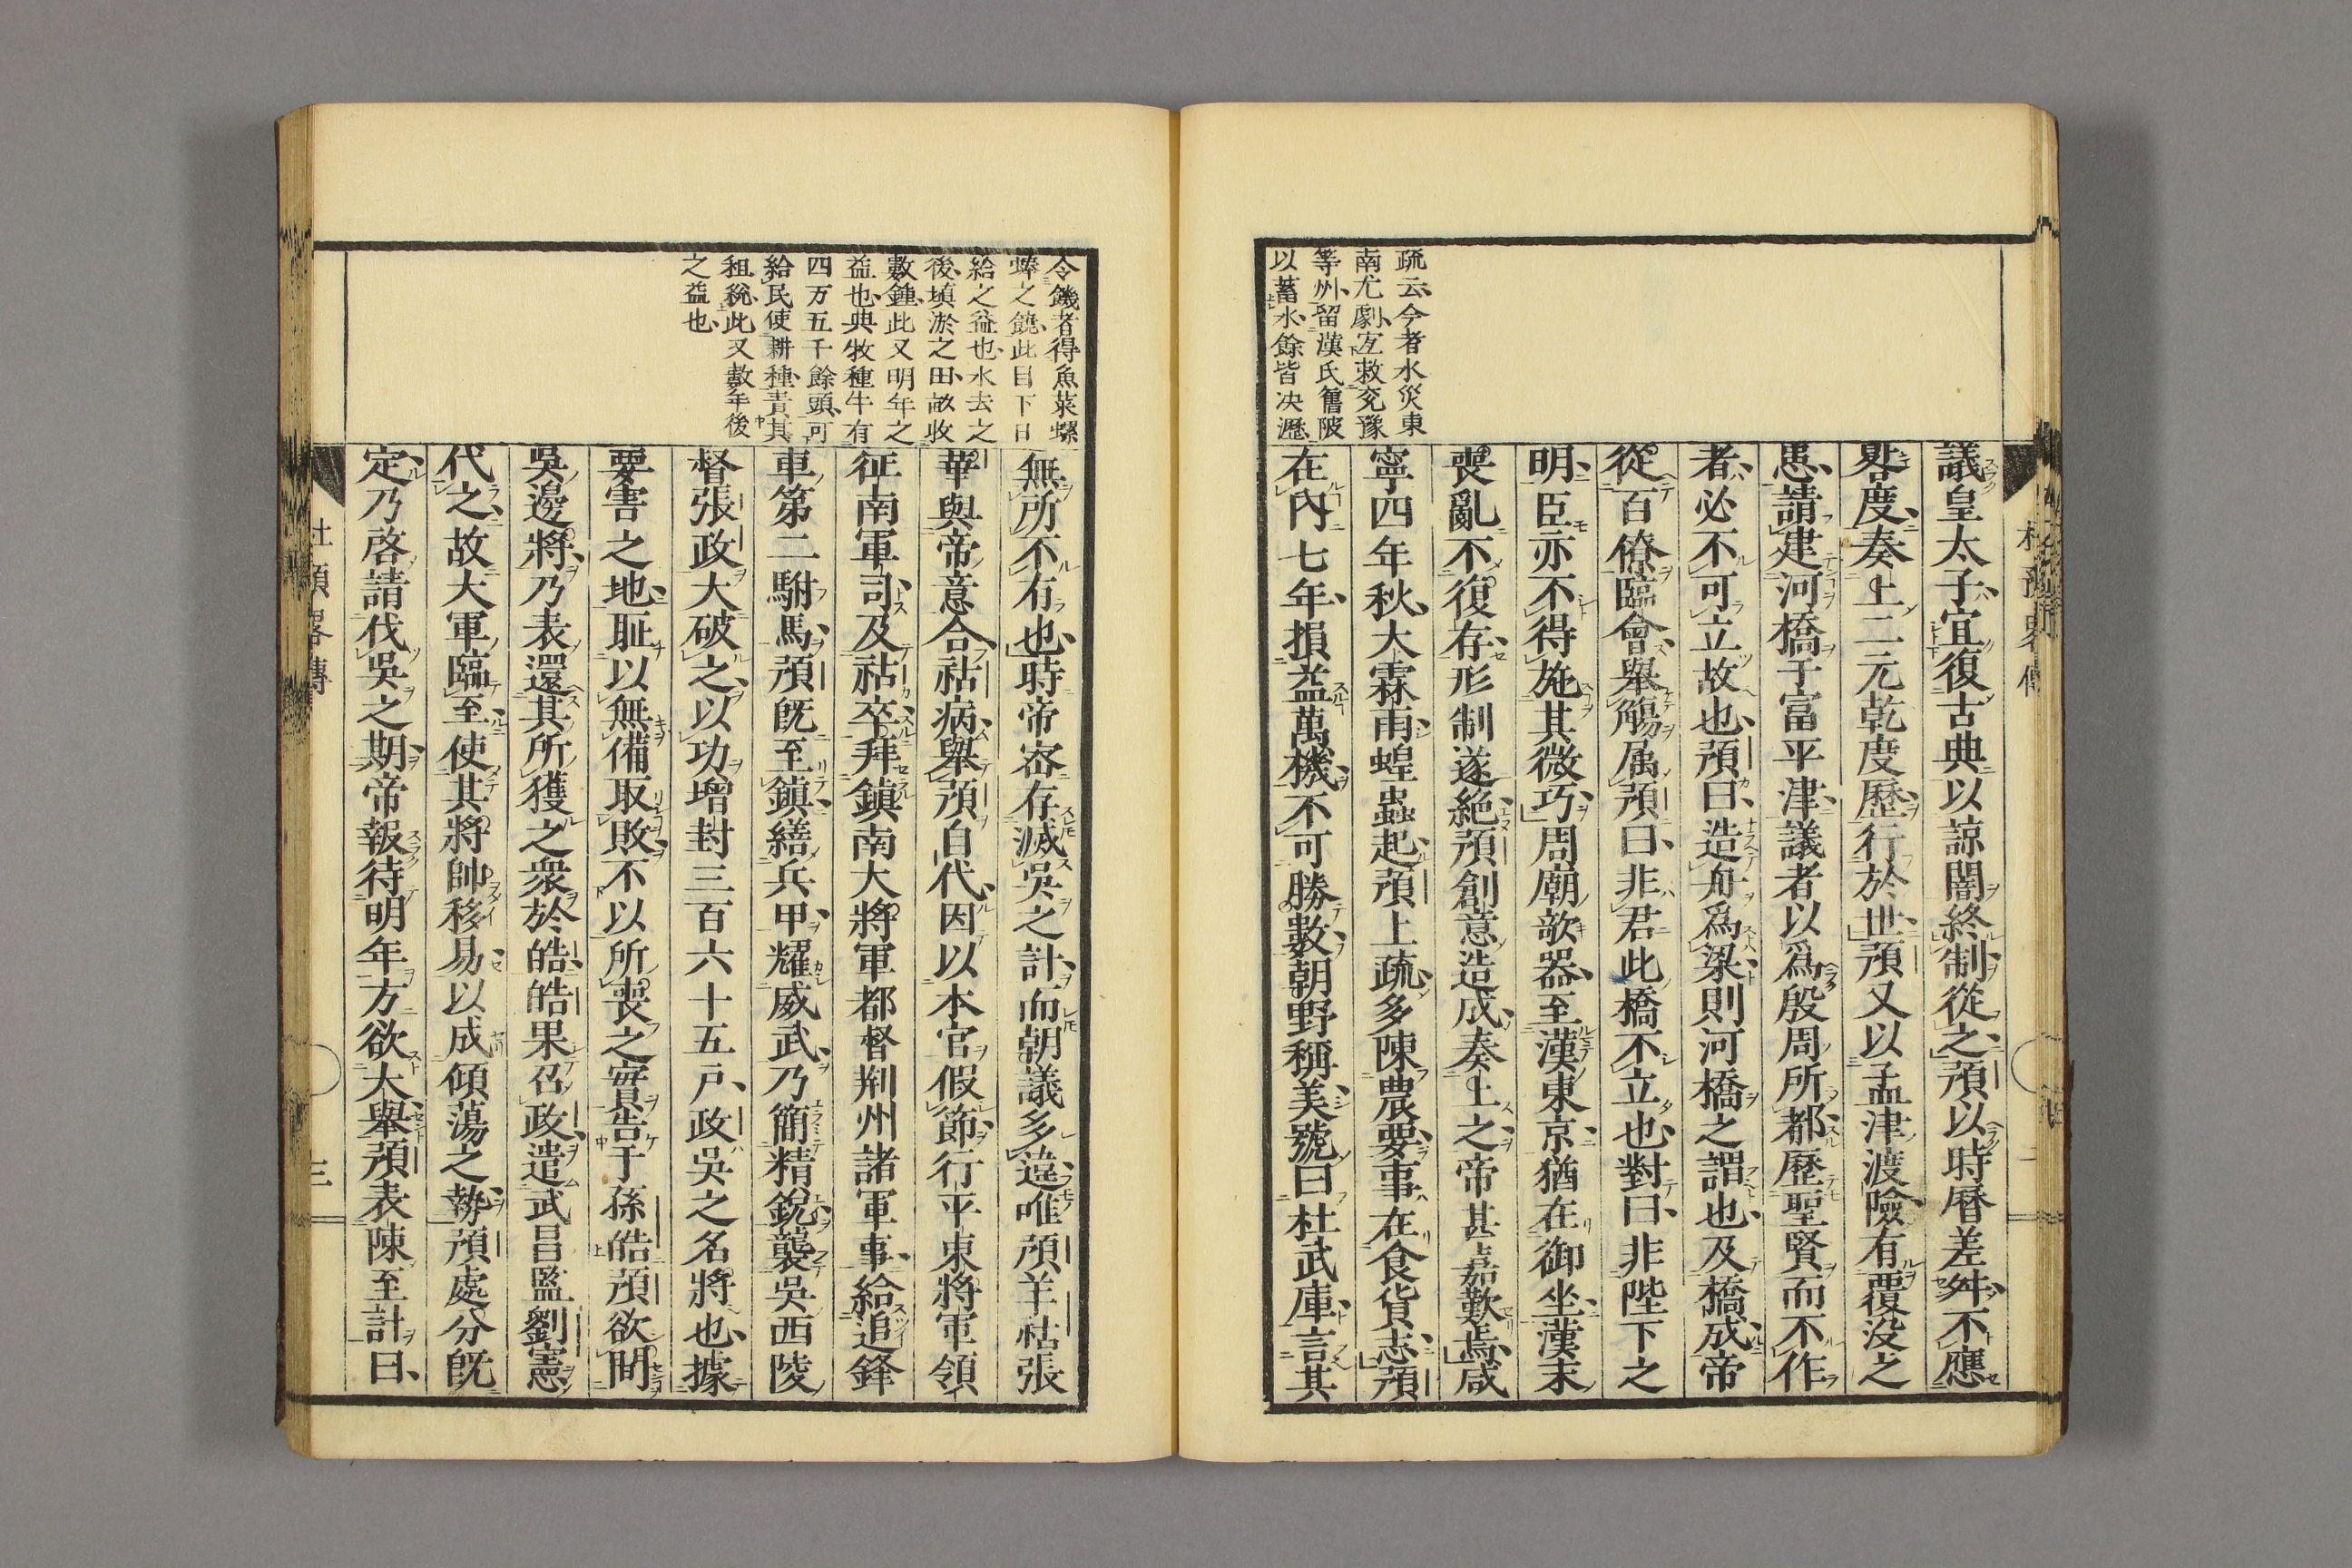 疏云今者水災東
南尤劇宜救兗豫
等州留漢氏舊陂
以蓄水餘皆决瀝
議皇太子宜復古典以諒闇終制從之預以時曆差舛不應
晷度奏上二元乾度歷行於世預又以孟津渡險有覆没之
患請建河橋于富平津議者以爲殷周所都歷聖賢而不作
者必不可立故也預曰造舟爲梁則河橋之謂也及橋成帝
從百僚臨會舉觴属預曰非君此橋不立也對曰非陛下之
明臣亦不得施其微巧周廟欹器至漢東京猶在御坐漢末
喪亂不復存形制遂絶預創意造成奏上之帝甚嘉歎焉咸
寧四年秋大霖雨蝗蟲起預上疏多陳農要事在食貨志預
在内七年損益萬機不可勝數朝野稱美號曰杜武庫言其
令饑者得魚菜螺
蜯之饒此目下日
給之益也水去之
後填淤之田畝收
數鍾此又明年之
益也典牧種牛有
四万五千餘頭可
給民使耕種責其
租稅此又數年後
之益也
無所不有也時帝密存滅吳之計而朝議多違唯預羊祜張
華與帝意合祜病舉預自代因以本官假節行平東將軍領
征南軍司及祜卒拜鎮南大將軍都督荆州諸軍事給追鋒
車第二駙馬預旣至鎮繕兵甲耀威武乃簡精銳襲吳西陵
督張政大破之以功增封三百六十五戸政吳之名將也據
要害之地耻以無備取敗不以所喪之實告于孫皓預欲間
吳邊將乃表還其所獲之衆於皓皓果召政遣武昌監劉憲
代之故大軍臨至使其將帥移易以成傾蕩之勢預處分旣
定乃啓請伐吳之期帝報待明年方欲大舉預表陳至計曰
杜預畧傳
三